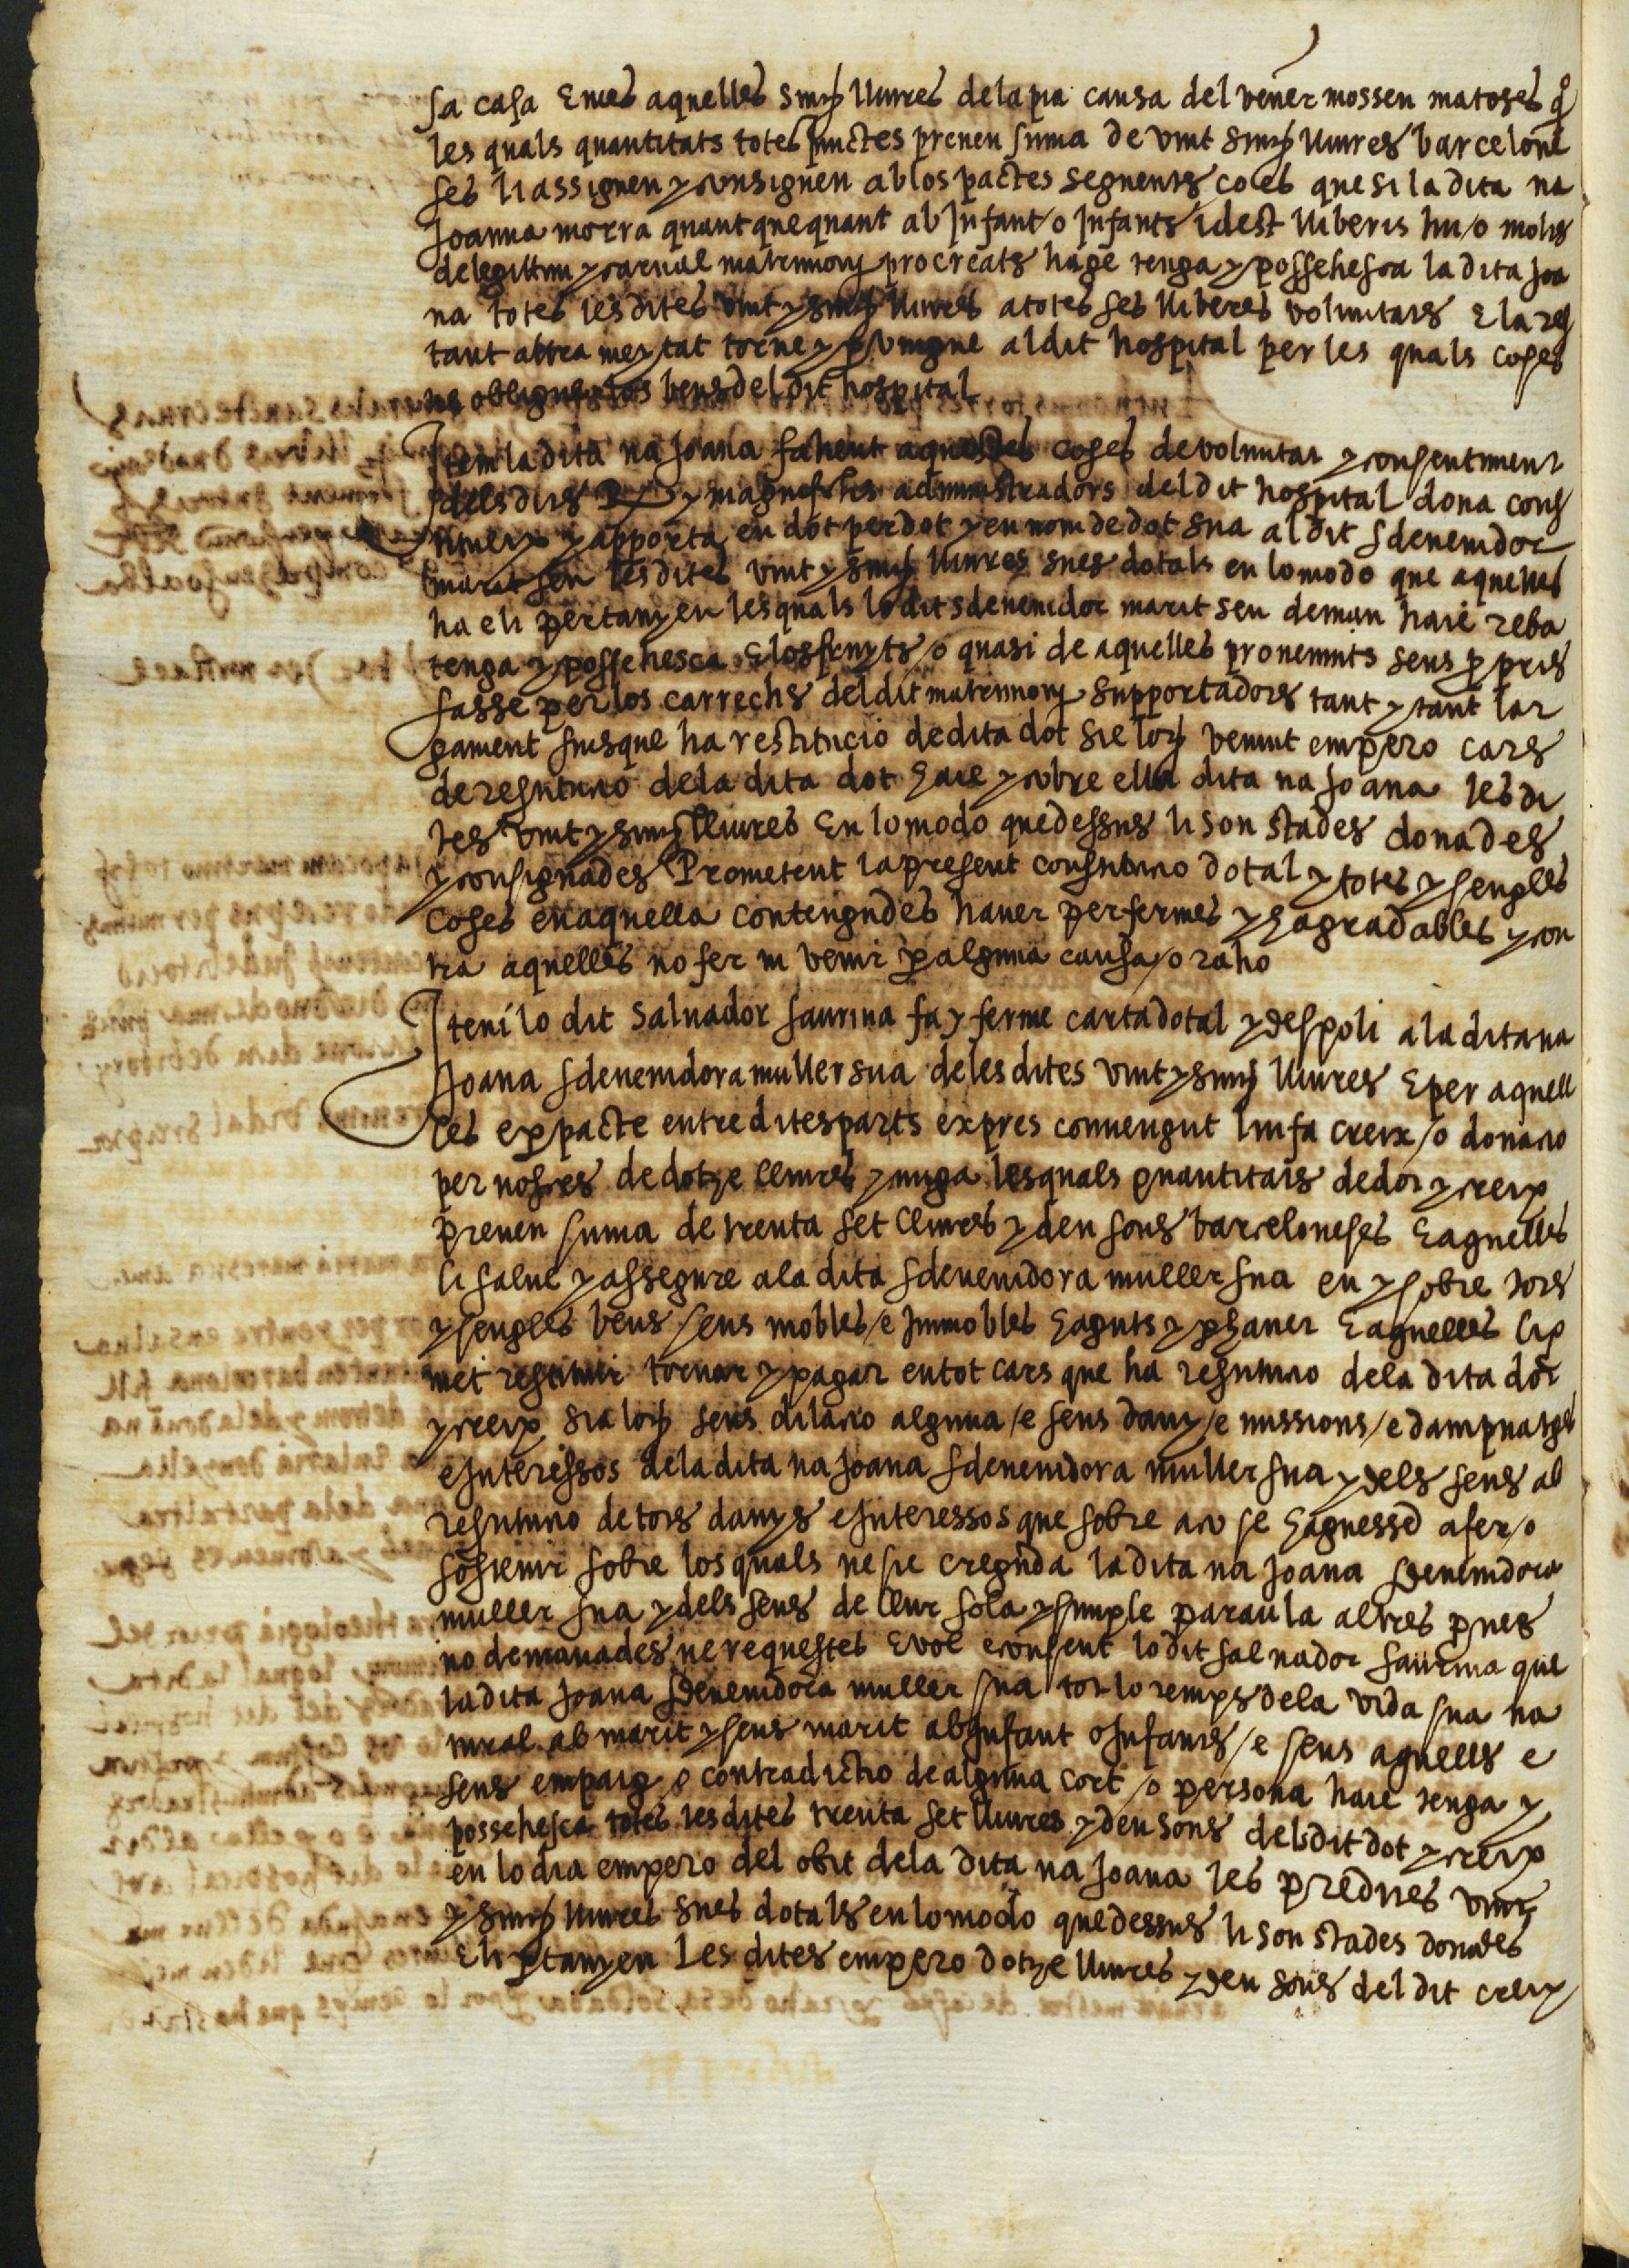 sa casa E mes aquelles sinch lliures de la pia causa del vener mossen matoses q
les quals quantitats totes junctes prenen suma de vint sinch lliures barcelone
ses li assignen y consignen ab los pactes seguents ço es que si la dita na
Joanna morra quant que quant ab Infant o Infants idest lliberis hu o molts
de legittim y carnal matrimony procreats hage tenga y possehesca la dita Joa
na totes les dites vint y sinch lliures a totes ses lliberes voluntats E la res
tant altra meytat torne y pvingue al dit hospital per les quals coses
ne obligue los bens del dit hospital
Item la dita na Joana fahent aquestes coses de voluntat y consentiment
dels dits y magnifichs administradors del dit hospital dona cons
titueix y apporta en dot per dot y en nom de dot sua al dit sdevenidor
marit seu les dites vint y sinch lliures sues dotals en lo modo que aquelles
ha e li pertanyen les quals lo dit sdevenidor marit seu deman haie reba
tenga y possehesca E los fruyts o quasi de aquelles provenints seus ppris
fasse per los carrechs del dit matrimony supportadors tant y tant lar
gament finsque ha restitucio de dita dot sie loch venint empero cars
de restitucio de la dita dot haie y cobre ella dita na Joana les di
tes vint y sinch lliures En lo modo que dessus li son stades donades
y consignades Prometent la present constitucio dotal y totes y sengles
coses en aquella contengudes haver per fermes y hagradables y con
tra aquelles no fer ni venir p alguna causa o raho
Item lo dit Salvador saurina fa y ferme carta dotal y despoli a la dita na
Joana sdevenidora muller sua de les dites vint y sinch lliures E per aquell
les e p pacte entre dites parts expres convengut li fa creix o donacio
per nosces de dotze lliures y miga les quals quantitats de dot y creix
prenen suma de trenta set lliures y deu sous barceloneses E aquelles
li salve y assegure a la dita sdevenidora muller sua en y sobre tots
y sengles bens seus mobles e Immobles haguts y p haver E aquelles li p
met restituir tornar y pagar en tot cars que ha restitucio de la dita dot
y creix sia loch sens dilacio alguna e sens dany e missions e dampnatges
e Interessos de la dita na Joana sdevenidora muller sua y dels seus ab
restitucio de tots danys e Interessos que sobre aço se haguessen a fer o
sostenir sobre los quals ne sie creguda la dita na Joana sdevenidora
muller sua y dels seus de llur sola y simple paraula altres pves
no demanades ne requestes E vol e consent lo dit salvador saurina que
la dita Joana sdevenidora muller sua tot lo temps de la vida sua na
tural ab marit y sens marit ab Infant o Infants e sens aquells e
sens empaig o contradictio de alguna cort o persona haie tenga y
possehesca totes les dites trenta set lliures y deu sous del dit dot y creix
en lo dia empero del obit de la dita na Joana les predites vint
y sinch lliures sues dotals en lo modo que dessus li son stades donades
E li ptanyen Les dites empero dotze lliures y deu sous del dit creix